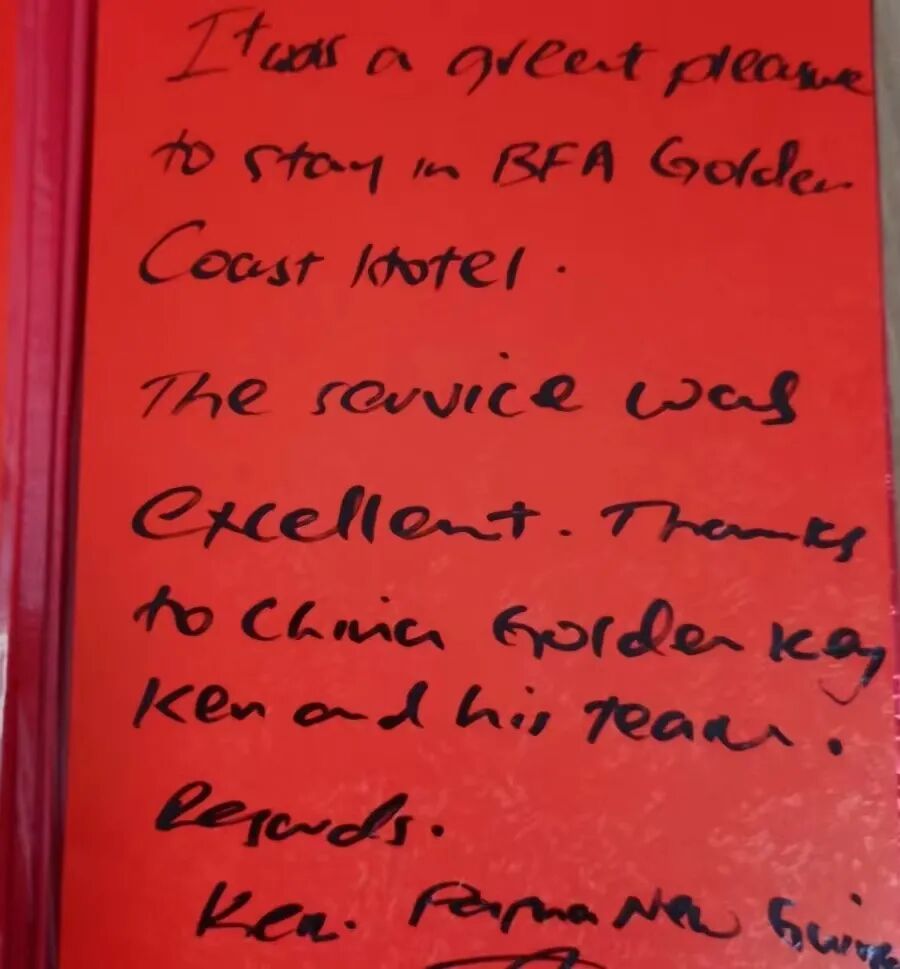 It was a great pleasure
to stay in BFA Golden
Coast Hotel.
The service was
excellent. Thanks
to China Golden Key
Ken and his team.
Regards.
Ken. Papua New Guinea